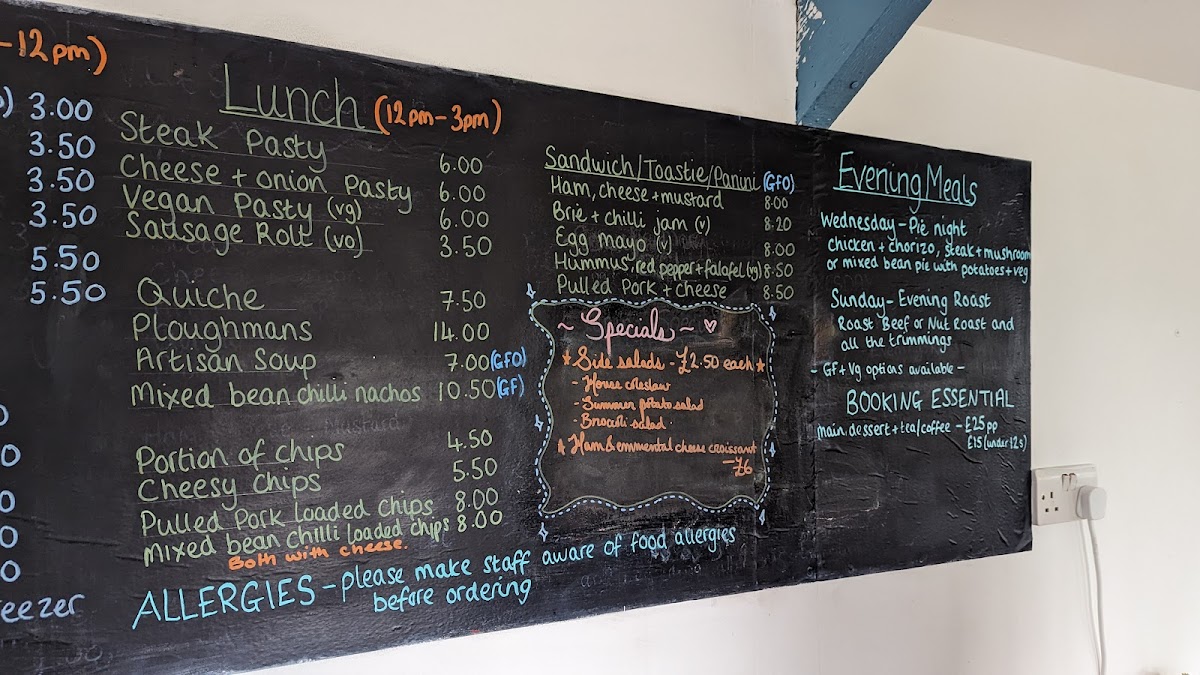 -12pm)
3.00
3.50
3.50
3.50
5.50
5.50
Lunch (12pm-3pm)
Steak Pasty 6.00
Cheese + onion Pasty 6.00
Vegan Pasty (vg) 6.00
Sausage Roll (vo) 3.50
Quiche 7.50
Ploughmans 14.00
Artisan Soup 7.00 (GFO)
Mixed bean chilli nachos 10.50 (GF)
Portion of chips 4.50
Cheesy chips 5.50
Pulled Pork loaded chips 8.00
mixed bean chilli loaded chips 8.00
Both with cheese.
ALLERGIES - please make staff aware of food allergies
before ordering
Sandwich/Toastie/Panini (GFO)
Ham, cheese + mustard 8.00
Brie + chilli jam (v) 8.20
Egg mayo (v) 8.00
Hummus, red pepper + falafel (vg) 8.50
Pulled Pork + cheese 8.50
~ Specials ~
Side salads - £2.50 each
- House coleslaw
- Summer potato salad
- Broccoli salad
Ham & emmental cheese croissant
- £6
Evening Meals
Wednesday - Pie night
chicken + chorizo, steak + mushroom
or mixed bean pie with potatoes + veg
Sunday - Evening Roast
Roast Beef or Nut Roast and
all the trimmings
- GF + Vg options available -
BOOKING ESSENTIAL
main, dessert + tea/coffee - £25 pp
£15 (under 12s)